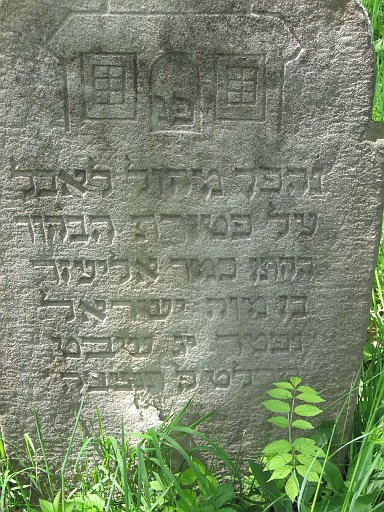 פנ
ונהפך מיהול לאבל
על פטירת הבחור
החתן כמר אליעזר
בן מוה ישראל
נפטר שבט
תנצבה